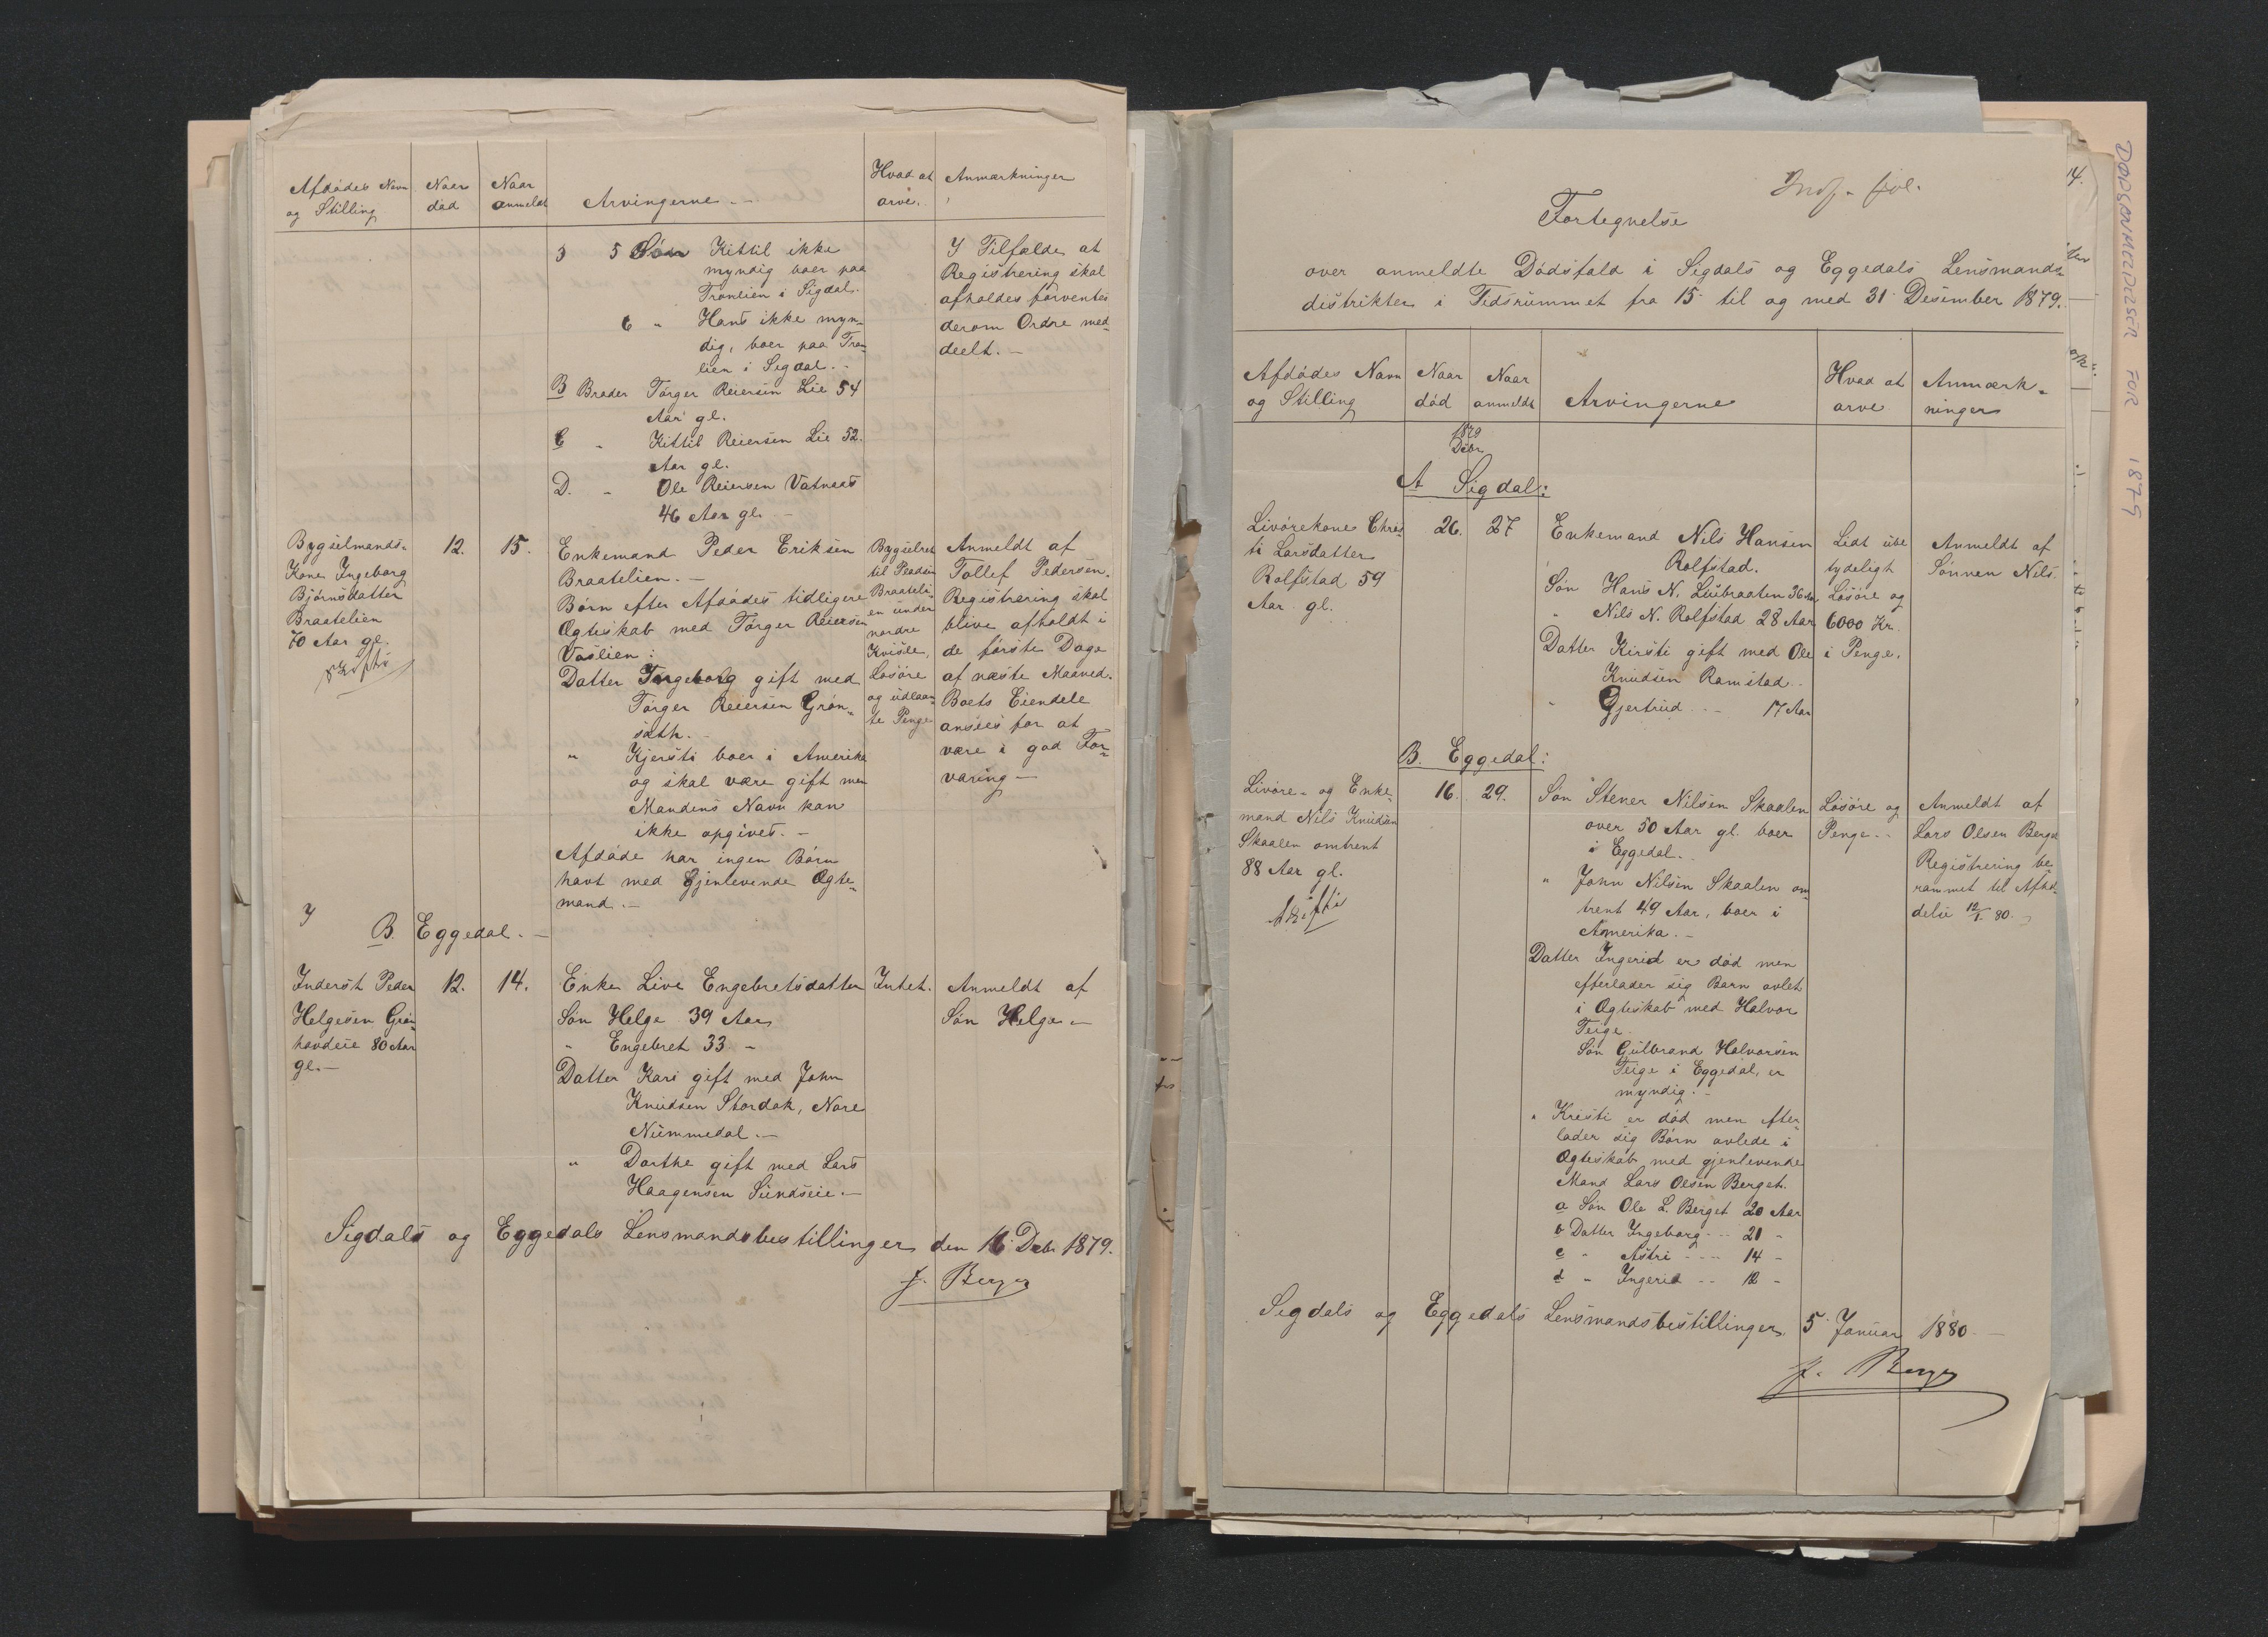 Afdødes Navn
og Stilling
Naar
død
Naar
anmeldt
Arvingerne
Hvad at
arve.
Anmærkninger
3 5 Søn Kittil ikke
myndig boer paa
Tronlien i Sigdal.
6 " Hans ikke myn-
dig, boer paa Tron-
lien i Sigdal.-
B Broder Torger Reiersen Lie 54
Aar gl.
C " Kittil Reiersen Lie 52.
Aar gl.
D. " Ole Reiersen Vatnaas
46 Aar gl. -
I Tilfælde at
Registrering skal
afholdes forventes
derom Ordre med-
deelt. -
Bygselmands-
Kone Ingeborg
Bjørnsdatter
Braatelien
70 Aar gl.
skifte
12.
15.
Enkemand Peder Eriksen
Braatelien. -
Børn efter Afdødes tidligere
Ægteskab med Torger Reiersen
Vaslien:
Datter Ingeborg gift med
Torger Reiersen Grøn-
sæth. -
" Kjersti boer i Amerika
og skal være gift men
Mandens Navn kan
ikke opgives. -
Afdøde har ingen Børn
havt med Gjenlevende Ægte-
mand. -
Bygselret
til Pladsen
Braateli-
en under
nordre
Kvisle,
Løsøre
og udlaan-
te Penge
Anmeldt af
Tollef Pedersen.
Registrering skal
blive afholdt i
de første Dage
af næste Maaned.
Boets Eiendele
ansees for at
være i god For-
varing -
B. Eggedal. -
Inderst Peder
Helgesen Grøn-
hovdeie 80 Aar
gl. -
12.
14.
Enke Live Engebretsdatter
Søn Helge 39 Aar
" Engebret 33 -
Datter Kari gift med John
Knudsen Stordok, Nore
Nummedal. -
" Dorthe gift med Lars
Haagensen Sundseie. -
Intet.
Anmeldt af
Søn Helge -
Sigdals og Eggedals Lensmandsbestillinger den 16 Debr 1879.
J. Berger
Fortegnelse
over anmeldte Dødsfald i Sigdals og Eggedals Lensmands-
distrikter i Tidsrummet fra 15 til og med 31 Desember 1879. -
Afdødes Navn
og Stilling
Naar
død
Naar
anmeldt
Arvingerne
Hvad at
arve
Anmærk-
ninger
1879
Debr.
A Sigdal:
Livørekone Chris-
ti Larsdatter
Rolfstad 59
Aar gl.
26.
27
Enkemand Nils Hansen
Rolfstad.
Søn Hans N. Luibraaten 36 Aar
" Nils N. Rolfstad 28 Aar
Datter Kirsti gift med Ole
Knudsen Ramstad -
" Gjertrud -- 17 Aar
Lidt ube
tydeligt
Løsøre og
6000 Kr.
i Penge.
Anmeldt af
Sønnen Nils
B. Eggedal:
Livøre- og Enke-
mand Nils Knudsen
Skaalen omtrent
88 Aar gl.
skifte
16.
29.
Søn Stener Nilsen Skaalen
over 50 Aar gl. boer
i Eggedal. -
" John Nilsen Skaalen om-
trent 49 Aar, boer i
Amerika. -
Datter Ingerid er død men
efterlader sig Barn avlet
i Ægteskab med Halvor
Teige.
Søn Gulbrand Halvorsen
Teige i Eggedal, er
myndig. -
" Kristi er død men efter-
lader sig Børn avlede i
Ægteskab med gjenlevende
Mand Lars Olsen Berget.
a Søn Ole L. Berget 20 Aar
b Datter Ingeborg -- 21 -
c " Astri --- 14 -
d " Ingerid -- 12 -
Løsøre og
Penge --
Anmeldt af
Lars Olsen Berget
Registrering be-
rammet til Afhol-
delse 12/1. 80.
Sigdals og Eggedals Lensmandsbestillinger 5 Januar 1880 -
J. Berger
14.
DØDSANMELDELSER FOR 1879